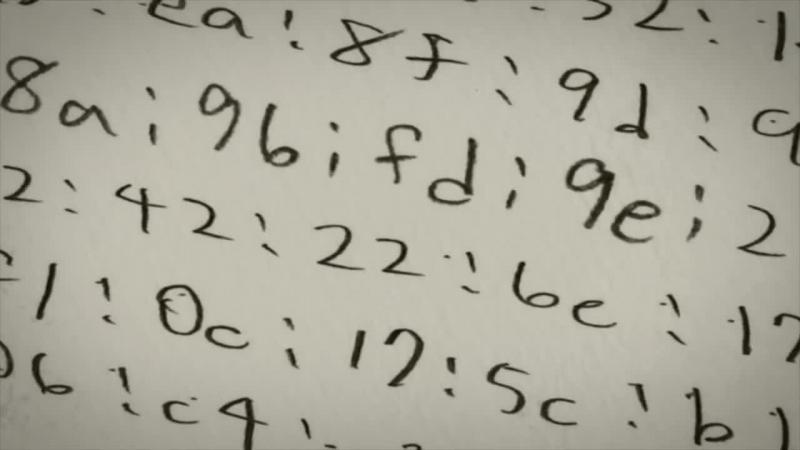 ea:8f:9d:
8a:9b:fd:9e:2
2:42:22:6e:17
1:0c:17:5c:b1
6:c4: